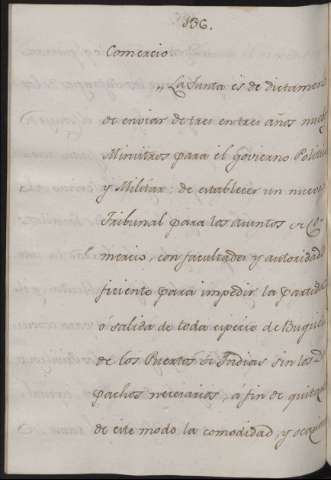 156.
Comercio
„ La Junta és de dictamen
de enviar de tres en tres años nuebos
Ministros para el Govierno Politico
y Militar: de establecer un nuevo
Tribunal para los asuntos de Co-
mercio, con facultades y autoridad
ficiente para impedir la partida
ó salida de toda especie de Buques
de los Puertos de Indias sin los
pachos necesarios, á fin de quitar
de este modo la comodidad, y ocasion